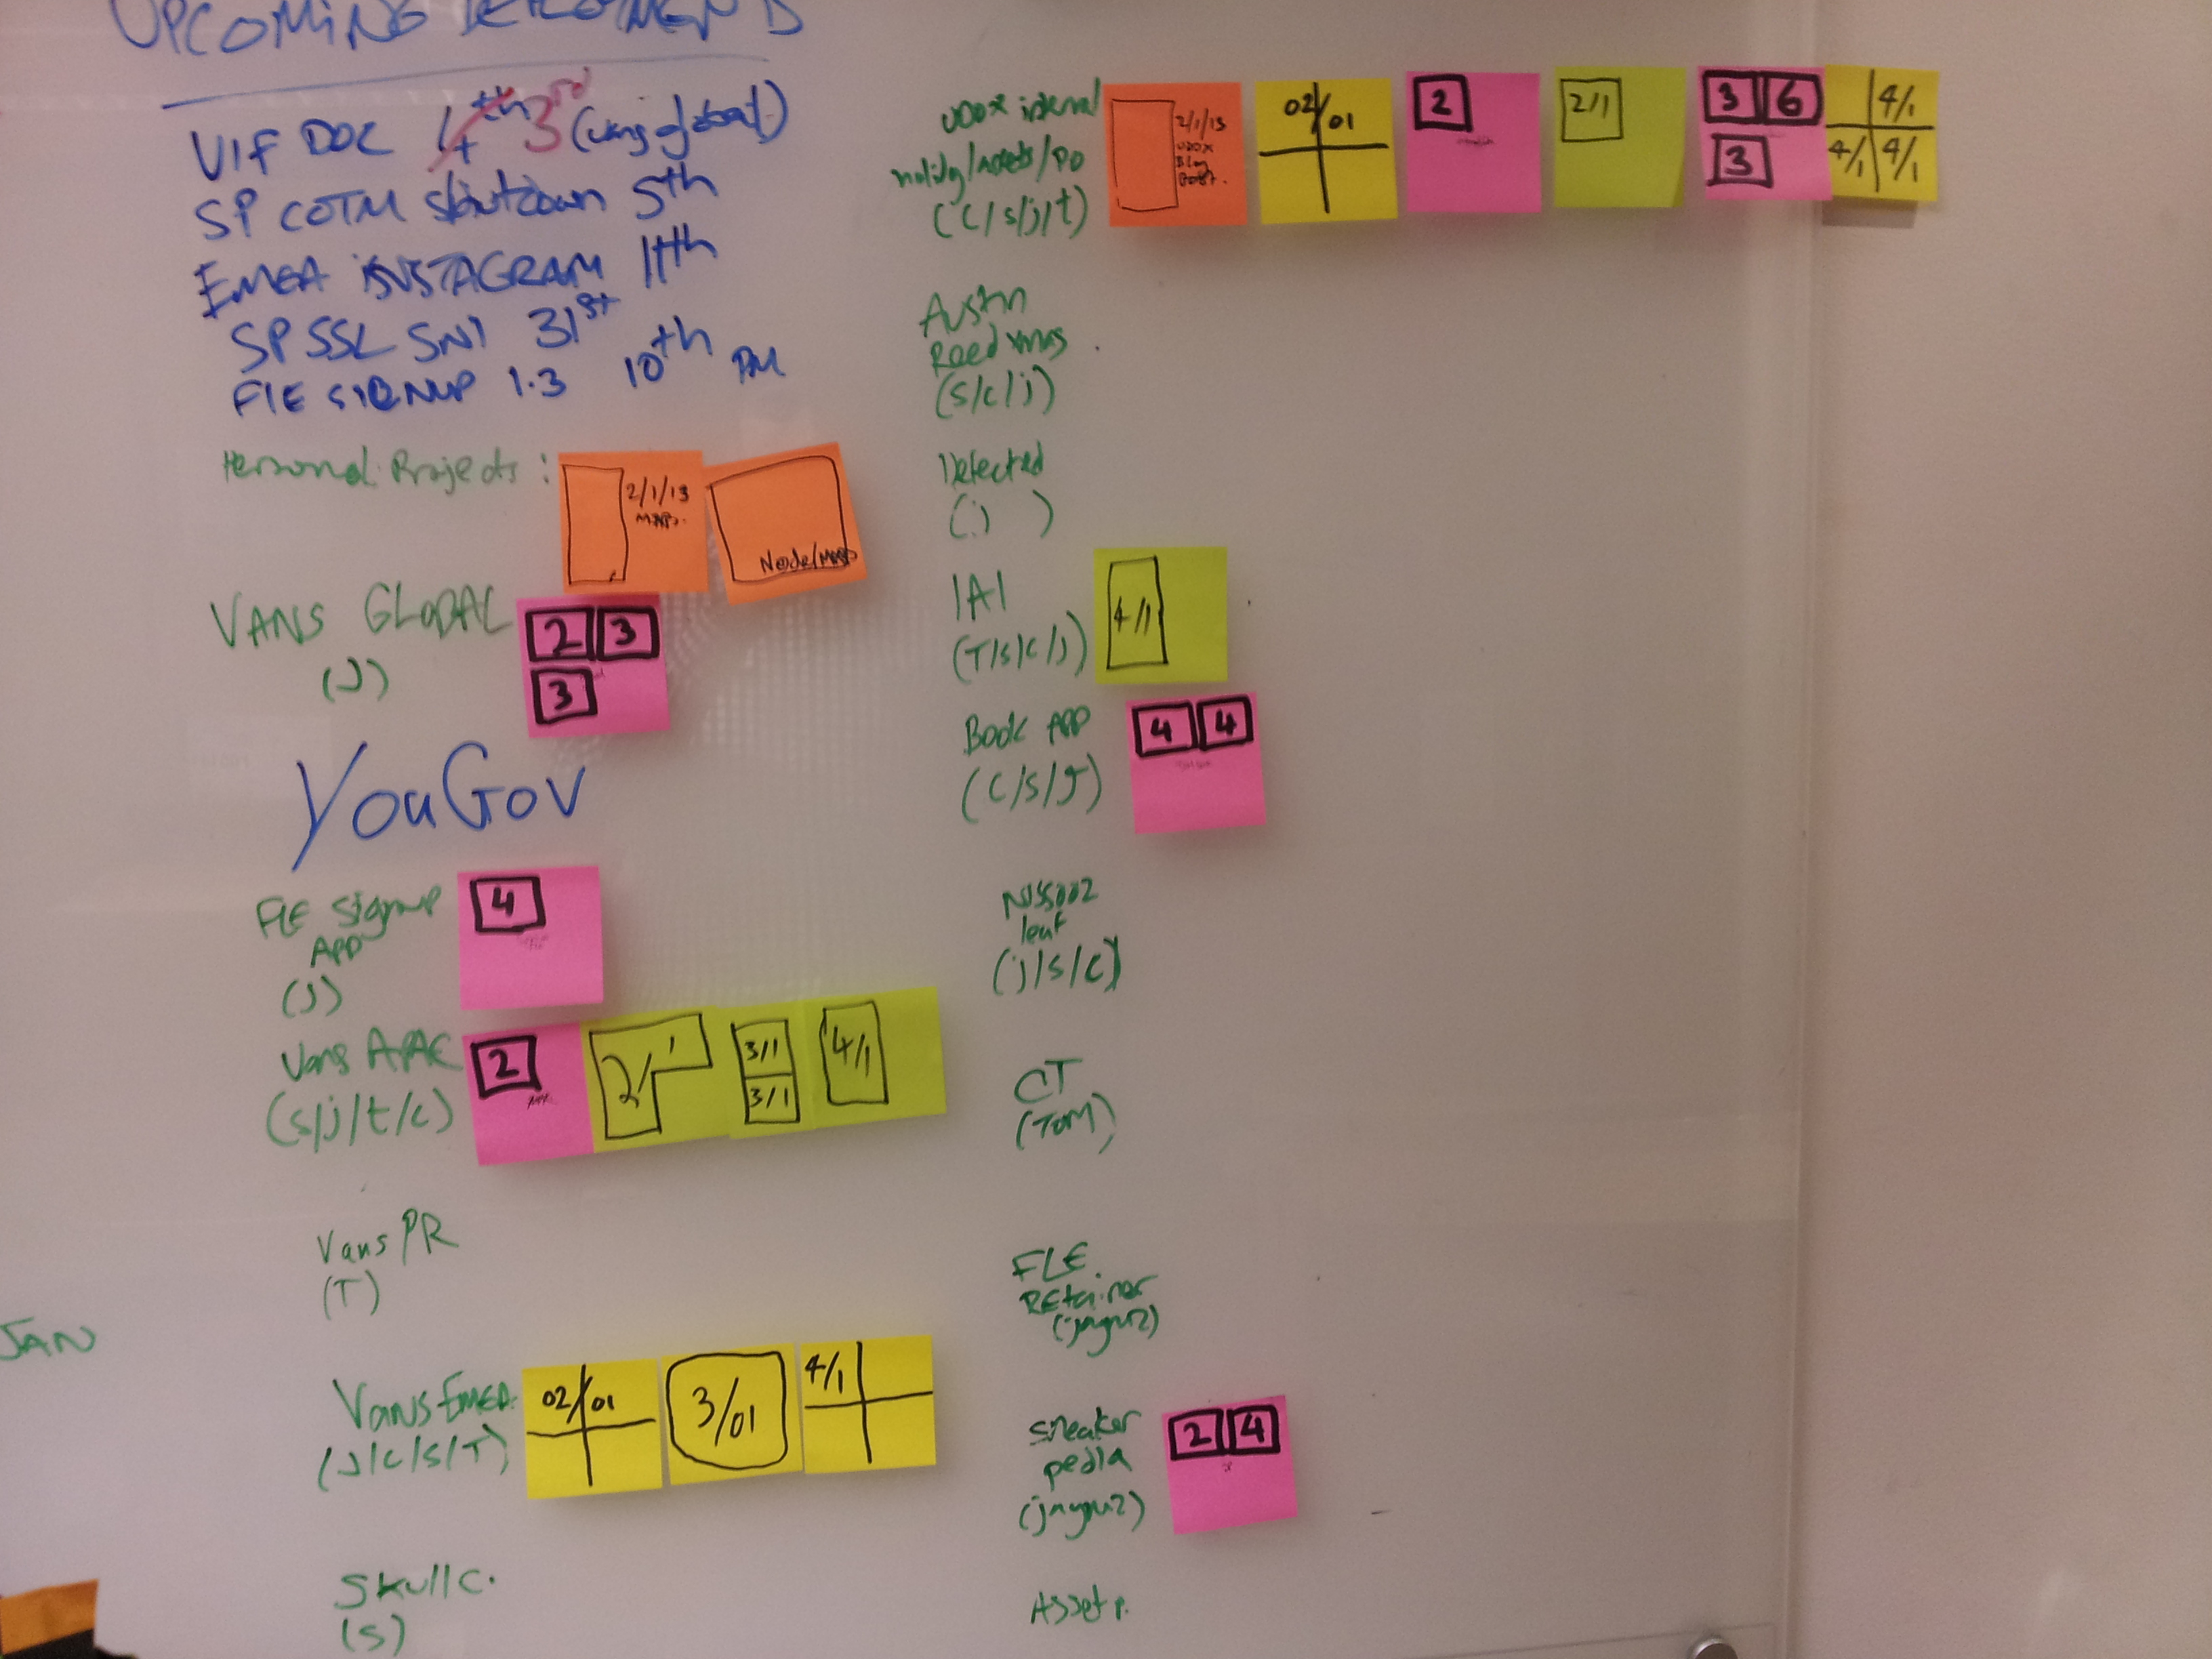 UPCOMING
VIF DOC 4th 3rd (vans global)
SP COTM shutdown 5th
EMEA INSTAGRAM 11th
SP SSL SNI 31st
FLE SIGNUP 1.3 10th PM
Personal Projects:
2/1/13
Node/
VANS GLOBAL
(J)
2 3
3
YouGov
FLE signup
APP
(J)
4
Vans APAC
(s/j/t/c)
2
2/1
3/1
3/1
4/1
Vans PR
(T)
JAN
Vans EMEA
(J/c/s/T)
02/01
3/01
4/1
Skullc.
(S)
UDOX internal
/Assets/PO
(C/s/j/t)
2/1/13
UDOX
Blog
Post.
02/01
2
2/1
3 6
3
4/1
4/1 4/1
Austin
Reed xmas
(s/c/j)
Defected
(j )
IAI
(T/s/c/j)
4/1
Book APP
(C/s/J)
4 4
leaf
(j/s/c)
CT
(TOM)
FLE
REtainer
Sneaker
pedia
2 4
Asset p.